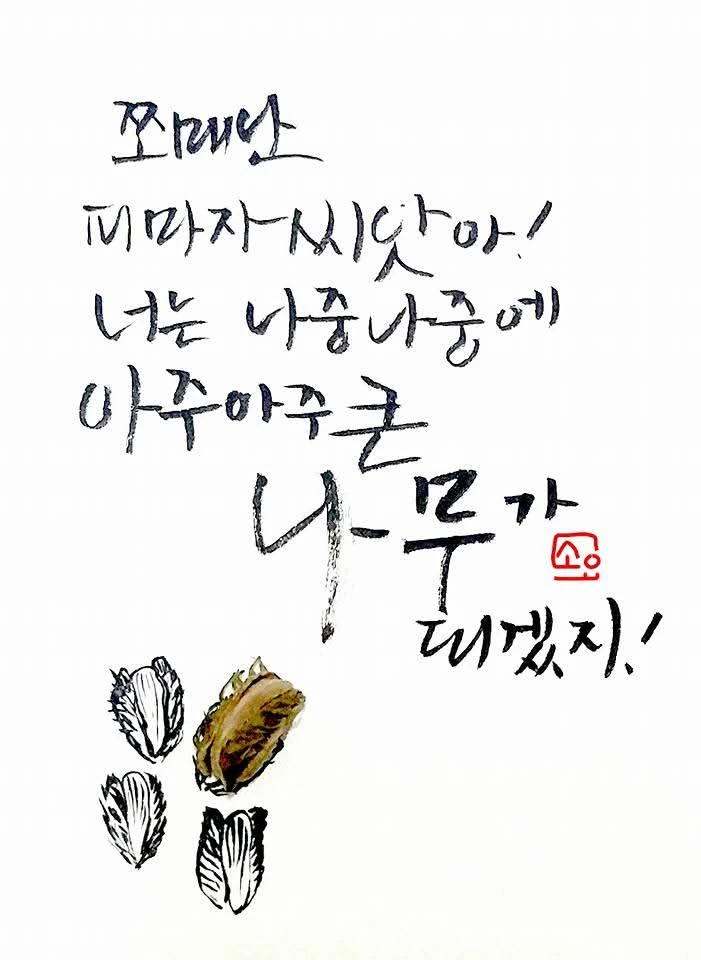 쬐매난
피마자씨앗아!
너는 나중나중에
아주아주큰
나무가
되겠지!